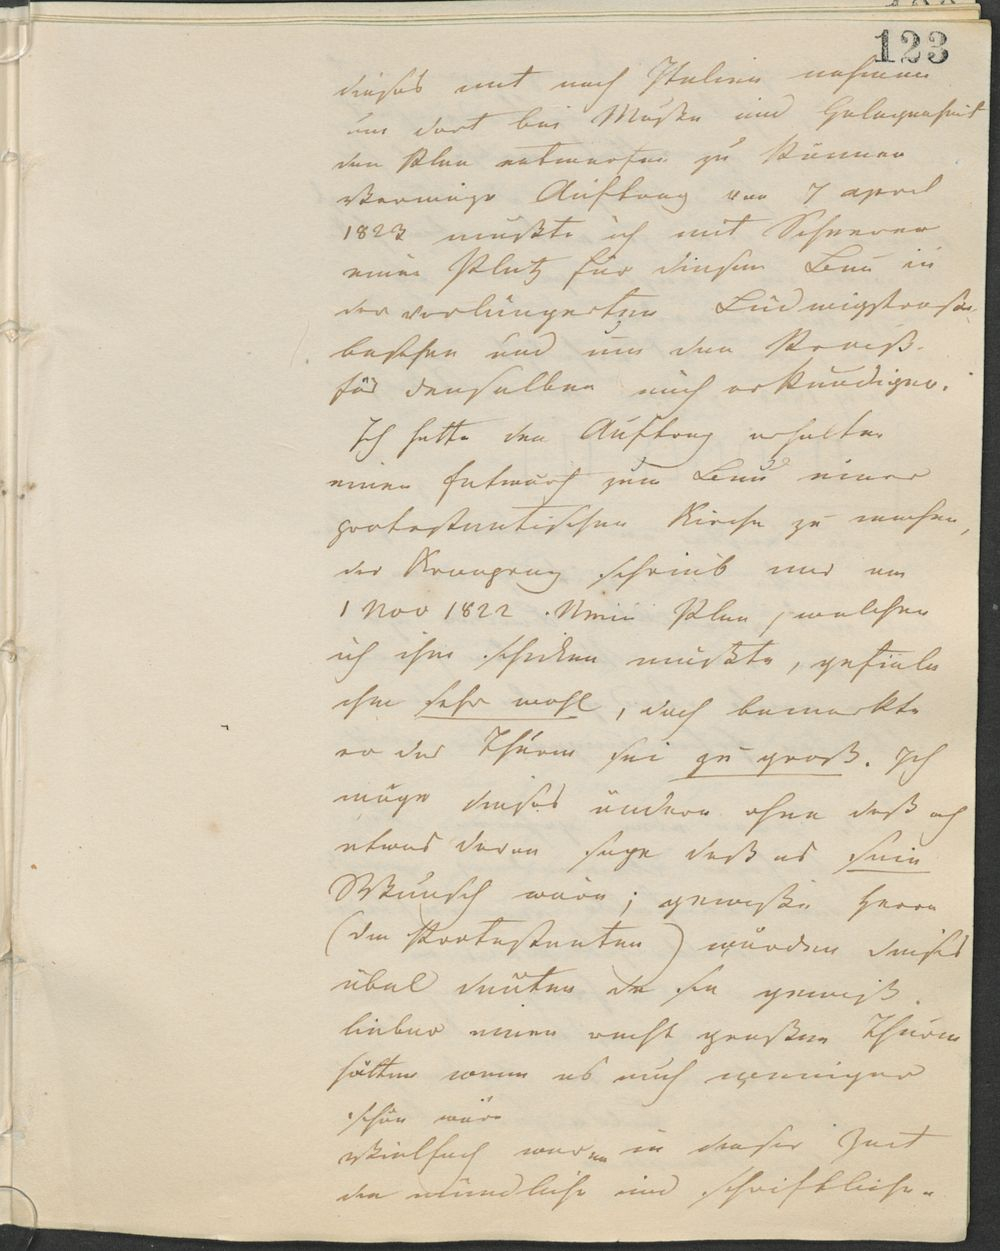 123
dieses mit nach Italien nehmen
um dort bei Muße und Gelegenheit
den Plan entwerfen zu können
Vermöge Auftrag vom 7 april
1823 mußte ich mit Scherer
einen Platz für diesen Bau in
der verlängerten Ludwigstraße
besehen und um den Preiß
für denselben mich erkundigen.
Ich hatte den Auftrag erhalten
einen Entwurf zum Bau einer
protestantischen Kirche zu machen,
der Kronprinz schrieb mir am
1 Nov 1822. Mein Plan, welchen
ich ihm schicken mußte, gefiele
ihm sehr wohl, doch bemerkte
er der Thurm sei zu groß. Ich
möge dieses ändern ohne daß ich
etwas davon sage daß es sein
Wunsch wäre; gewiße Herrn
(die Protestanten) würden dieses
übel deuten da sie gewiß
lieber einen recht großen Thurm
hätten wenn es auch weniger
schön wäre
Vielfach waren in dieser Zeit
die mündliche und schriftliche